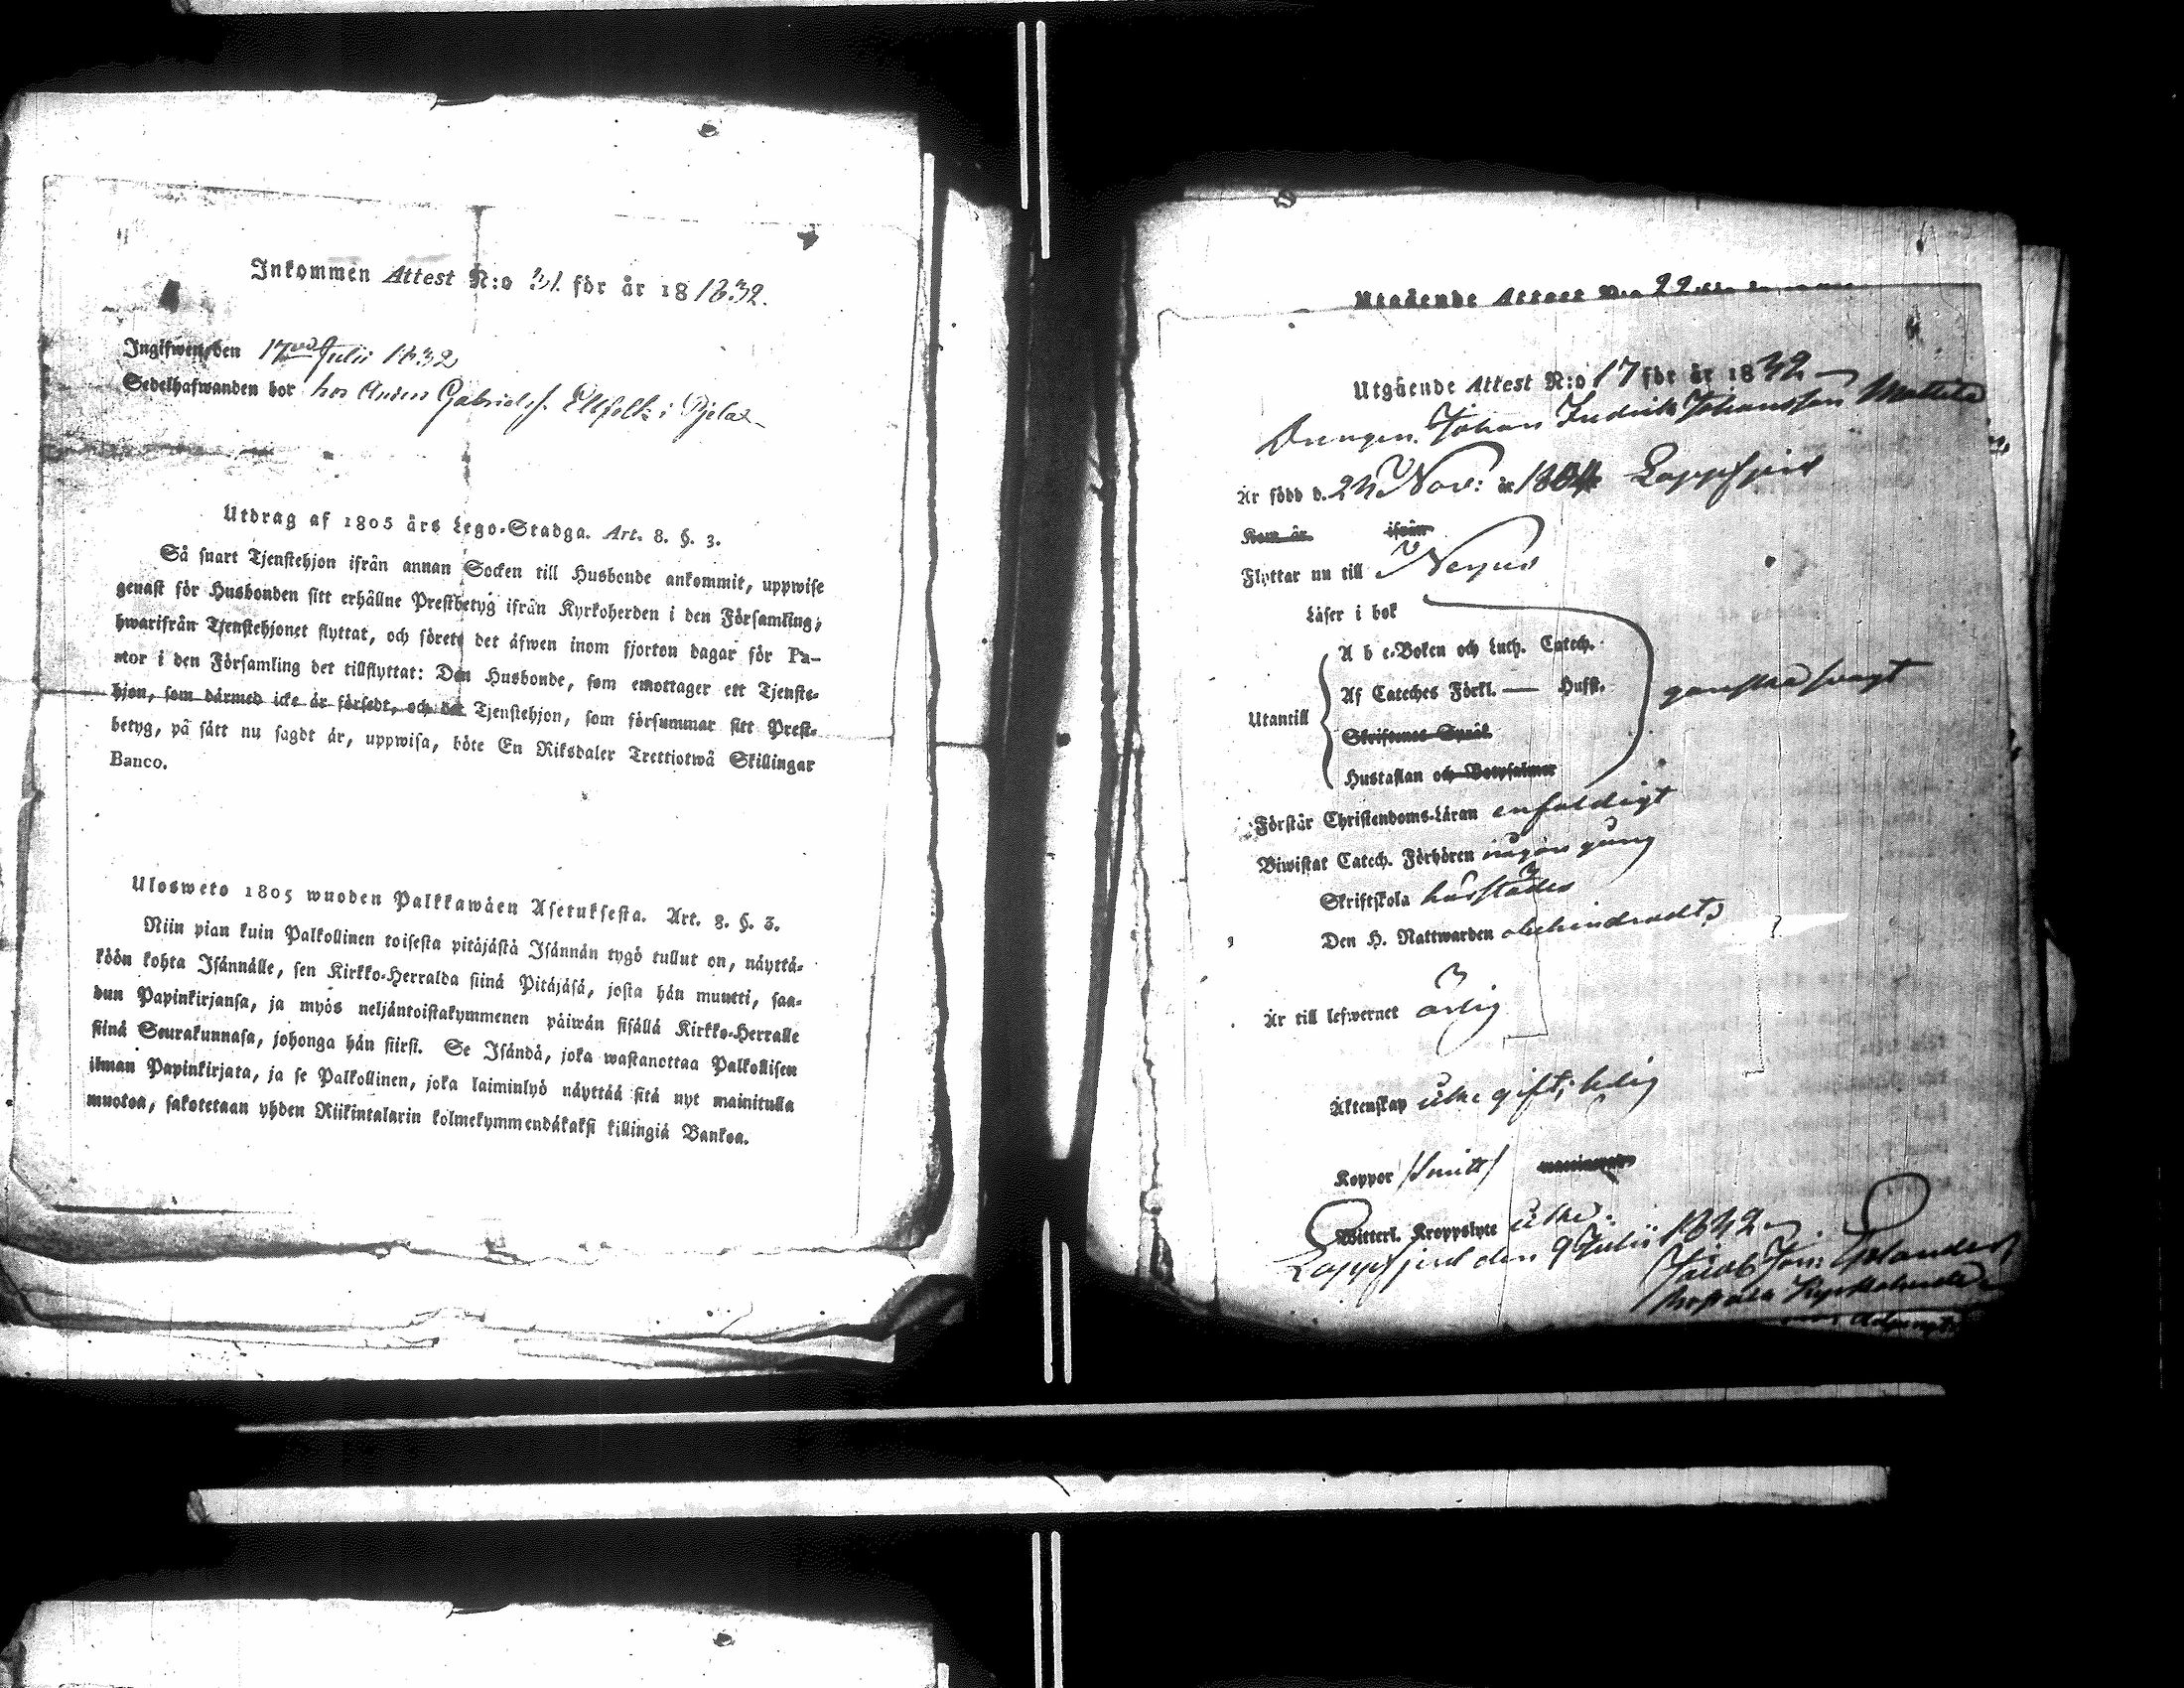 Inkommen Attest N:o 31. för år 18 1832.
Ingifwen den 17 Julii 1832
Sedelhafwanden bor hos Anders Gabrielss. i Pjelax
Utdrag af 1805 års Lego-Stadga. Art. 8. §. 3.
Så snart Tjenstehjon ifrån annan Socken till Husbonde ankommit, uppwise
genast för Husbonden sitt erhållne Prestbetyg ifrån Kyrkoherden i den Församling,
hwarifrån Tjenstehjonet flyttat, och förete det äfwen inom fjorton dagar för Pa-
stor i den Församling det tillflyttat: Den Husbonde, som emottager ett Tjenste-
hjon, som därmed icke är försedt, och det Tjenstehjon, som försummar sitt Prest-
betyg, på sätt nu sagdt är, uppwisa, böte En Riksdaler Trettiotwå Skillingar
Banco.
Ulosweto 1805 wuoden Palkkawäen Asetuksesta. Art. 8. §. 3.
Niin pian kuin Palkollinen toisesta pitäjästä Isännän tygö tullut on, näyttä-
köön kohta Isännälle, sen Kirkko-Herralda siinä Pitäjäsä, josta hän muutti, saa-
dun Papinkirjansa, ja myös neljäntoistakymmenen päiwän sisällä Kirkko-Herralle
siinä Seurakunnasa, johonga hän siirsi. Se Isändä, joka wastanottaa Palkollisen
ilman Papinkirjata, ja se Palkollinen, joka laiminlyö näyttää sitä nyt mainitulla
muotoa, sakotetaan yhden Riikintalarin kolmekymmendäkaksi killingiä Bankoa.
Utgående Attest N:o 22
Utgående Attest N:o 17 för år 1832
Drengen Johan Fredrik Johansson Mattila
Är född d. Nov: år 1804 Lappfjerd
Kom år ifrån
Flyttar nu till Nerpes
Läser i bok
A b c-Boken och Luth. Catech.
Af Cateches Förkl. — Husst. ganska svagt
Utantill
Skriftenes Språk
Hustaflan och Botpsalmer
Förstår Christendoms-Läran enfaldigt
Biwistat Catech. Förhören någon gång
Skriftskola härstädes
Den H. Nattwarden obehindradt
Är till lefwernet ärlig
Äktenskap icke gift; ledig
Koppor haft
Witterl. Kroppslyte icke.
Lappfjerd den 9 Julii 1832
Jacob Joh: